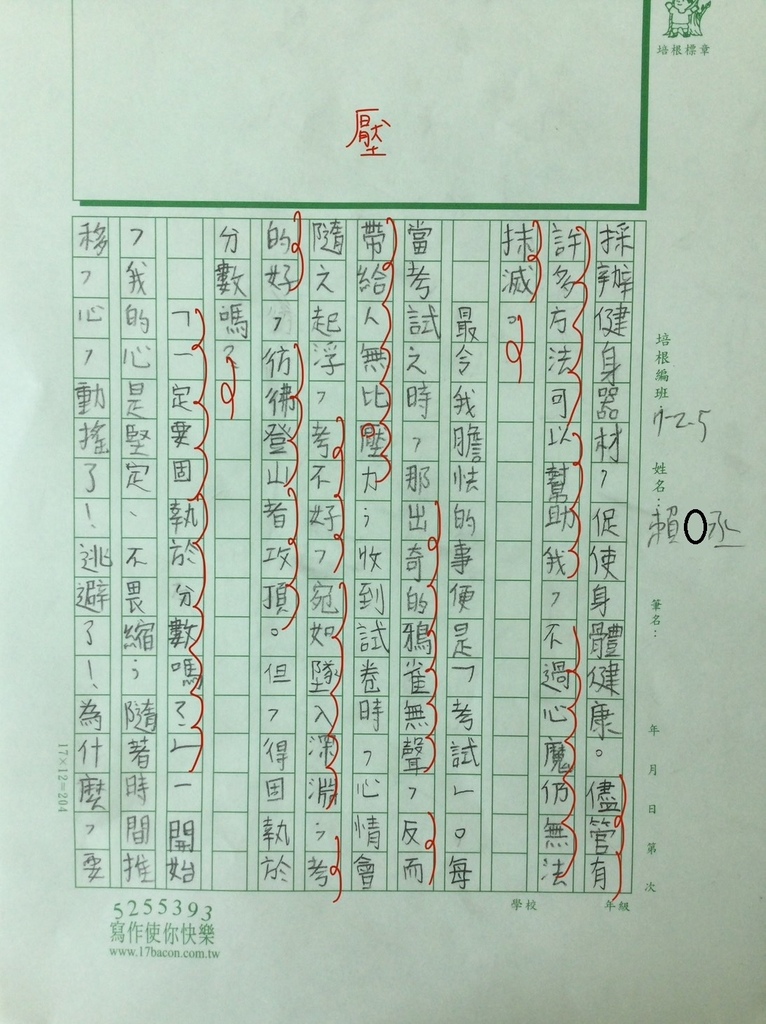 培根標章
壓
培根編班：
7-2-5
姓名：
賴
丞
筆名：
年 月 日 第 次
採辦健身器材，促使身體健康。儘管有
許多方法可以幫助我，不過心魔仍無法
抹滅。
最令我膽怯的事便是「考試」。每
當考試之時，那出奇的鴉雀無聲，反而
帶給人無比壓力；收到試卷時，心情會
隨之起浮，考不好，宛如墜入深淵；考
的好，彷彿登山者攻頂。但，得固執於
分數嗎？
「一定要固執於分數嗎？」一開始
，我的心是堅定、不畏縮；隨著時間推
移，心，動搖了！逃避了！為什麼，要
17×12=204
學校
年級
5255393
寫作使你快樂
www.17bacon.com.tw